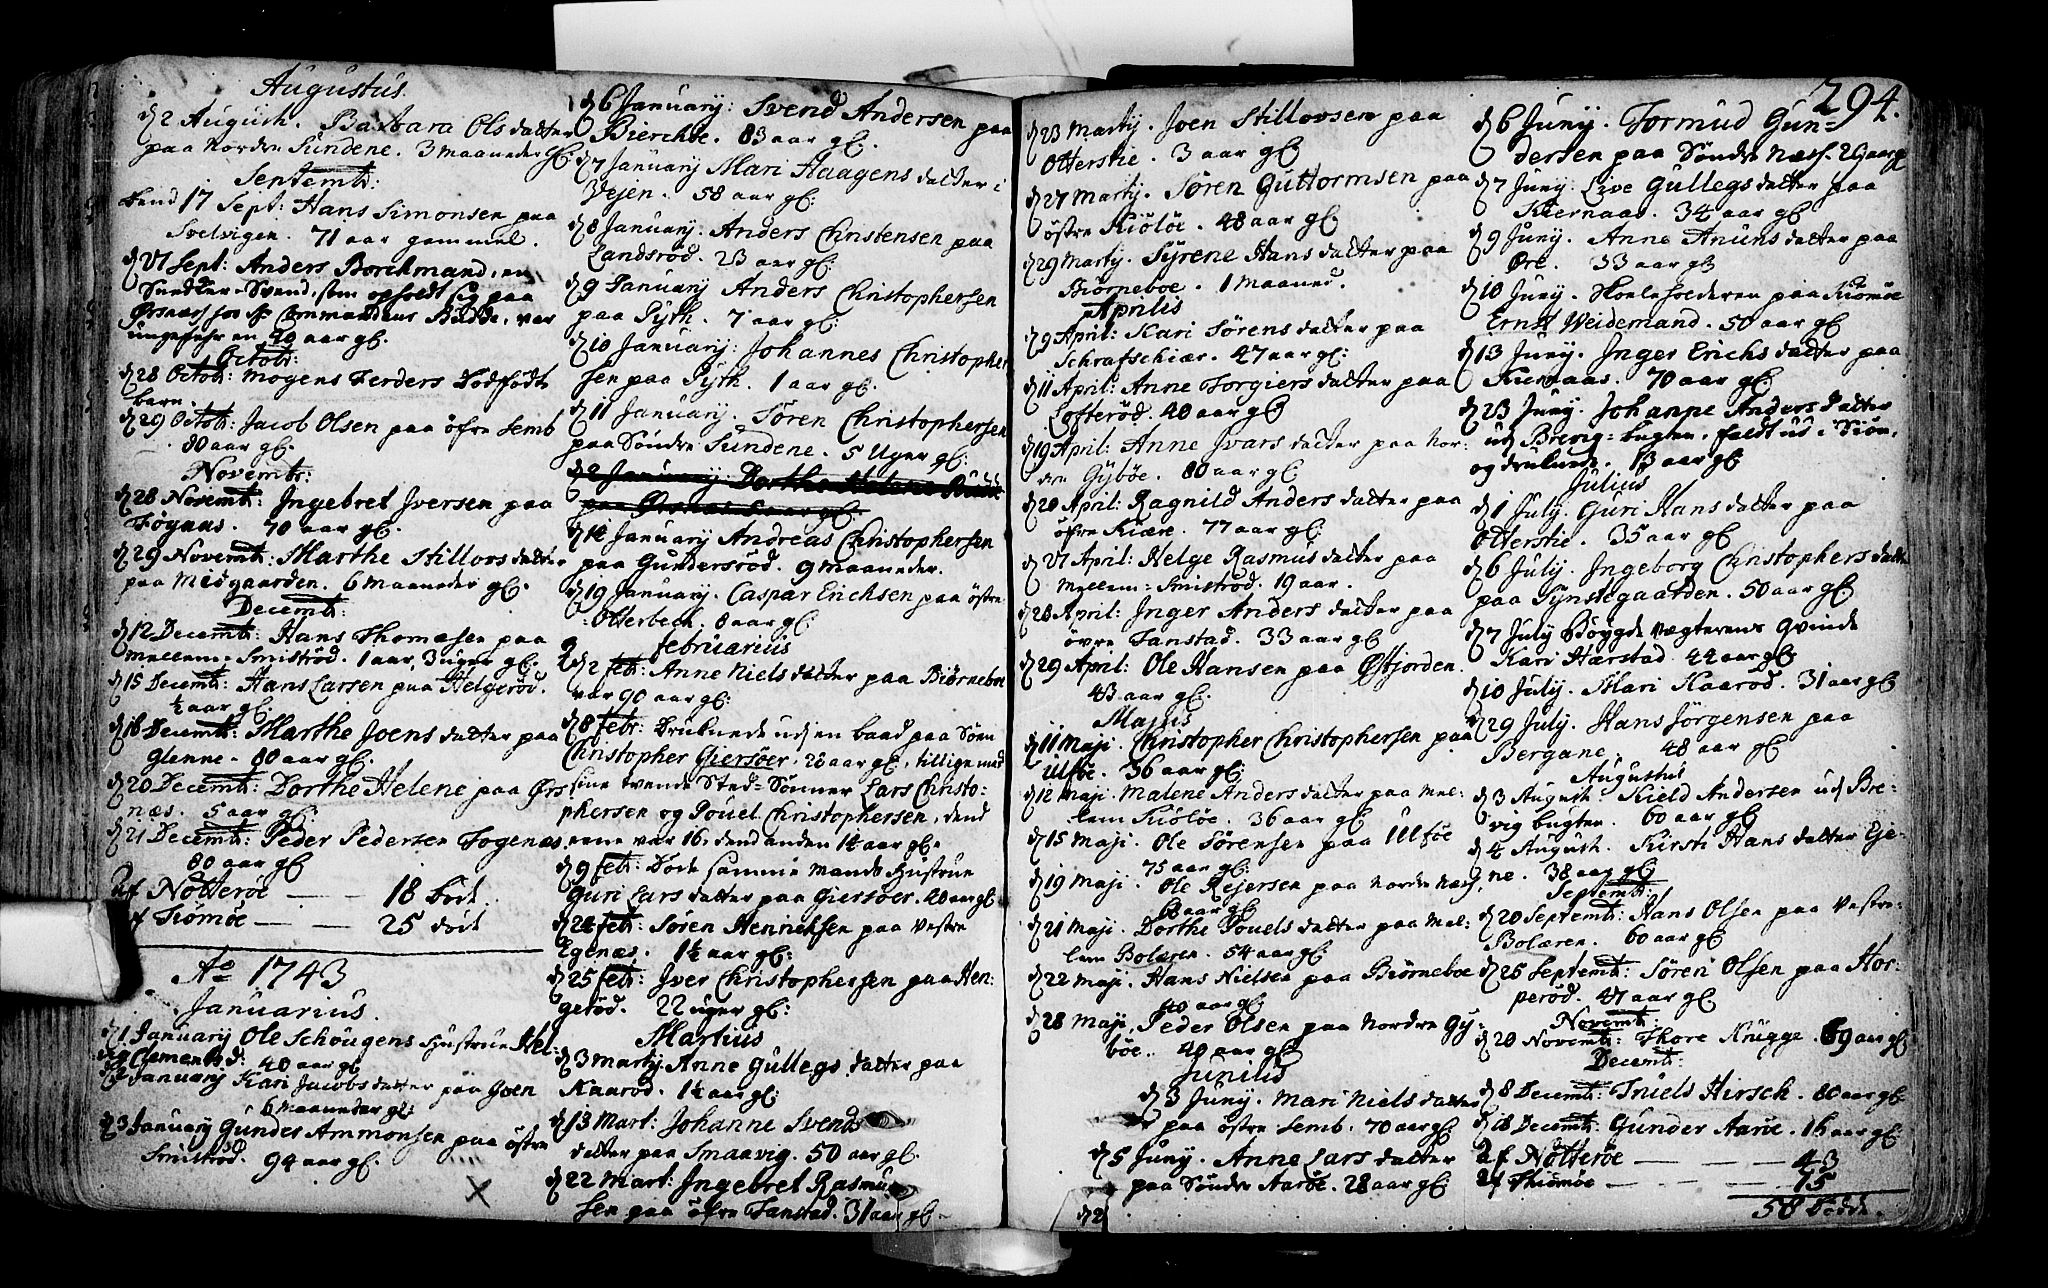 Augustus.
d 2 Augusti. Barbara Olsdatter
paa Nordre Sundene. 3 maaneder gl:
Septembr:
Dend 17 Sept: Hans Simonsen paa
Svelvigen. 71 aar gammel.
d 27 Sept: Anders Borchmand, en
Snedker-Svend, som opholdt sig paa
Ørsnæs hos Hr Commandeur Budde, var
ungefehr en 40 aar gl.
Octobr:
d 28 Octob: Mogens Ferders Dødfødt
barn.
d 29 Octob: Jacob Olsen paa öfre Semb
80 aar gl:
Novembr:
d 28 Novembr: Ingebret Iversen paa
Føgnæs. 70 aar gl.
d 29 Novembr: Marthe Stillovsdatter
paa Medgaarden. 6 maaneder gl:
Decembr:
d 12 Decembr: Hans Thomesen paa
Mellem-Smiströd. 1 aar, 3 uger gl.
d 15 Decembr: Hans Larsen paa Helgeröd.
½ aar gl.
d 16 Decembr: Marthe Joensdatter paa
Glenne. 80 aar gl.
d 20 Decembr: Dorthe Helene paa Ørs
næs. 5 aar gl:
d 21 Decembr: Peder Pedersen Fogenæs
80 aar gl
Af Nötteröe — 18 död.
Af Tiömöe — 25 död
Ao 1743
Januarius.
d 1 January Ole Schougens Hustrue Hel:
40 aar gl
d 2 January Kari Jacobsdatter paa Goen
6 maaneder gl:
d 3 January Gunder Ammonsen paa östre
Smiströd. 94 aar gl.
d 6 January: Svend Andersen paa
Bierchöe. 83 aar gl.
d 7 January Mari Haagensdatter i
Vejen. 58 aar gl:
d 8 January. Anders Christensen paa
Landsröd. 23 aar gl.
d 9 January Anders Christophersen
paa Pyth. 7 aar gl:
d 10 January: Johannes Christopher
sen paa Pyth. 1 aar gl.
d 11 January. Sören Christophersen
paa Söndre Sundene. 5 Uger gl:
d 2 January: Dorthe Helene Budde
paa Ørsnæs 5 aar gl.
d 14 January Andreas Christophersen
paa Gundersröd. 9 maaneder.
d 19 January. Caspar Erichsen paa östre
Otterbech. 8 aar gl:
Februarius
d 2 febr: Anne Nielsdatter paa Biörneboe
var 90 aar gl:
d 8 febr: Druknede udj en baad paa Söen
Christopher Giersöer. 28 aar gl, tillige med
sine tvende Sted-Sönner Lars Christo-
phersen og Pouel Christophersen, dend
eene var 16, dend anden 14 aar gl.
d 9 febr: Döde samme Mands Hustrue
Guri Larsdatter paa Giersöer. 40 aar gl
d 24 febr: Sören Henrichsen paa Vestre
Egenæs. 1½ aar gl:
d 25 febr: Iver Christophersen paa Hen-
geröd. 22 uger gl:
Martius
d 3 Marty Anne Gullegsdatter paa
Kaaröd. 1½ aar gl:
d 13 Mart: Johanne Svends
datter paa Smaavig. 50 aar gl.
d 22 Mart: Ingebret Rasmu-
sen paa öfre Tanstad. 31 aar gl-
294.
d 23 Marty. Joen Stillovsen paa
Otterstie. 3 aar gl
d 27 Marty. Sören Guttormsen paa
östre Kiölöe. 48 aar gl.
d 29 Marty. Syrene Hansdatter paa
Biörneboe. 1 maaned.
Aprilis
d 9 April: Kari Sörensdatter paa
Schrafschiær. 47 aar gl:
d 11 April: Anne Torgiersdatter paa
Lofteröd. 40 aar gl
d 19 April: Anne Ivarsdatter paa Nor:
dre Gyböe. 80 aar gl:
d 20 April: Ragnild Andersdatter paa
öfre Kiære. 77 aar gl:
d 27 April: Helge Rasmusdatter paa
Mellem-Smiströd. 19 aar.
d 28 April: Inger Andersdatter paa
övre Tanstad. 33 aar gl
d 29 April: Ole Hansen paa Østjorden.
43 aar gl:
Majus
d 11 Maji. Christopher Christophersen paa
Ulföe. 36 aar gl:
d 12 Maji. Malene Andersdatter paa Mel-
lem Kiölöe. 36 aar gl:
d 15 Maji. Ole Sörensen paa Ulföe
75 aar gl:
d 19 Maji. Ole Rejersen paa Nordre Næss,
aar gl
d 21 Maji. Dorthe Pouelsdatter paa Mel-
lem Bolæren. 54 aar gl
d 22 Maji. Hans Nielsen paa Biörneboe
40 aar gl
d 28 Maji. Peder Olsen paa Nordre Gy-
böe. 40 aar gl
Junius
d 3 Juny. Mari Nielsdatter
paa östre Semb. 70 aar gl
d 5 Juny. Anne Larsdatter
paa Söndre Aaröe. 28 aar gl:
d 2
d 6 Juny. Tormud Gun-
dersen paa Söndre Næss. 26 aar gl
d 7 Juny: Live Gullegsdatter paa
Kiernaas. 34 aar gl
d 9 Juny. Anne Anunsdatter paa
Øre. 33 aar gl
d 10 Juny. Skoleholderen paa Tiömöe
Ernst Weidemand. 50 aar gl
d 13 Juny. Inger Erichsdatter paa
Kiernaas. 70 aar gl
d 23 Juny. Johanne Andersdatter
udj Brevig-bugten, faldt ud i Siön,
og druknede. 13 aar gl
Julius
d 1 July. Guri Hansdatter paa
Otterstie. 35 aar gl
d 6 July. Ingeborg Christophersdatter
paa Synstegaarden. 50 aar gl
d 7 July Böygde Vægterens Qvinde
Kari Harstad. 44 aar gl
d 10 July. Mari Kaaröd. 31 aar gl
d 29 July. Hans Jörgensen paa
Bergane. 48 aar gl
Augustus
d 3 August: Kield Andersen udj Bre-
vig bugten. 60 aar gl
d 4 August. Kirsti Hansdatter Eje-
ne. 38 aar gl
Septembr:
d 20 Septembr: Hans Olsen paa Vestre-
Bolæren. 60 aar gl
d 25 Septembr: Sören Olsen paa Hor-
peröd. 47 aar gl
Novembr:
d 20 Novembr: Thore Krügge. 69 aar gl
Decembr:
d 8 Decembr: Truels Hirsch. 80 aar gl
d 18 Decembr: Gunder Aaröe. 16 aar gl
Af Nötteröe — — — 43
Af Thiömöe — — — 15
58 Dödde.